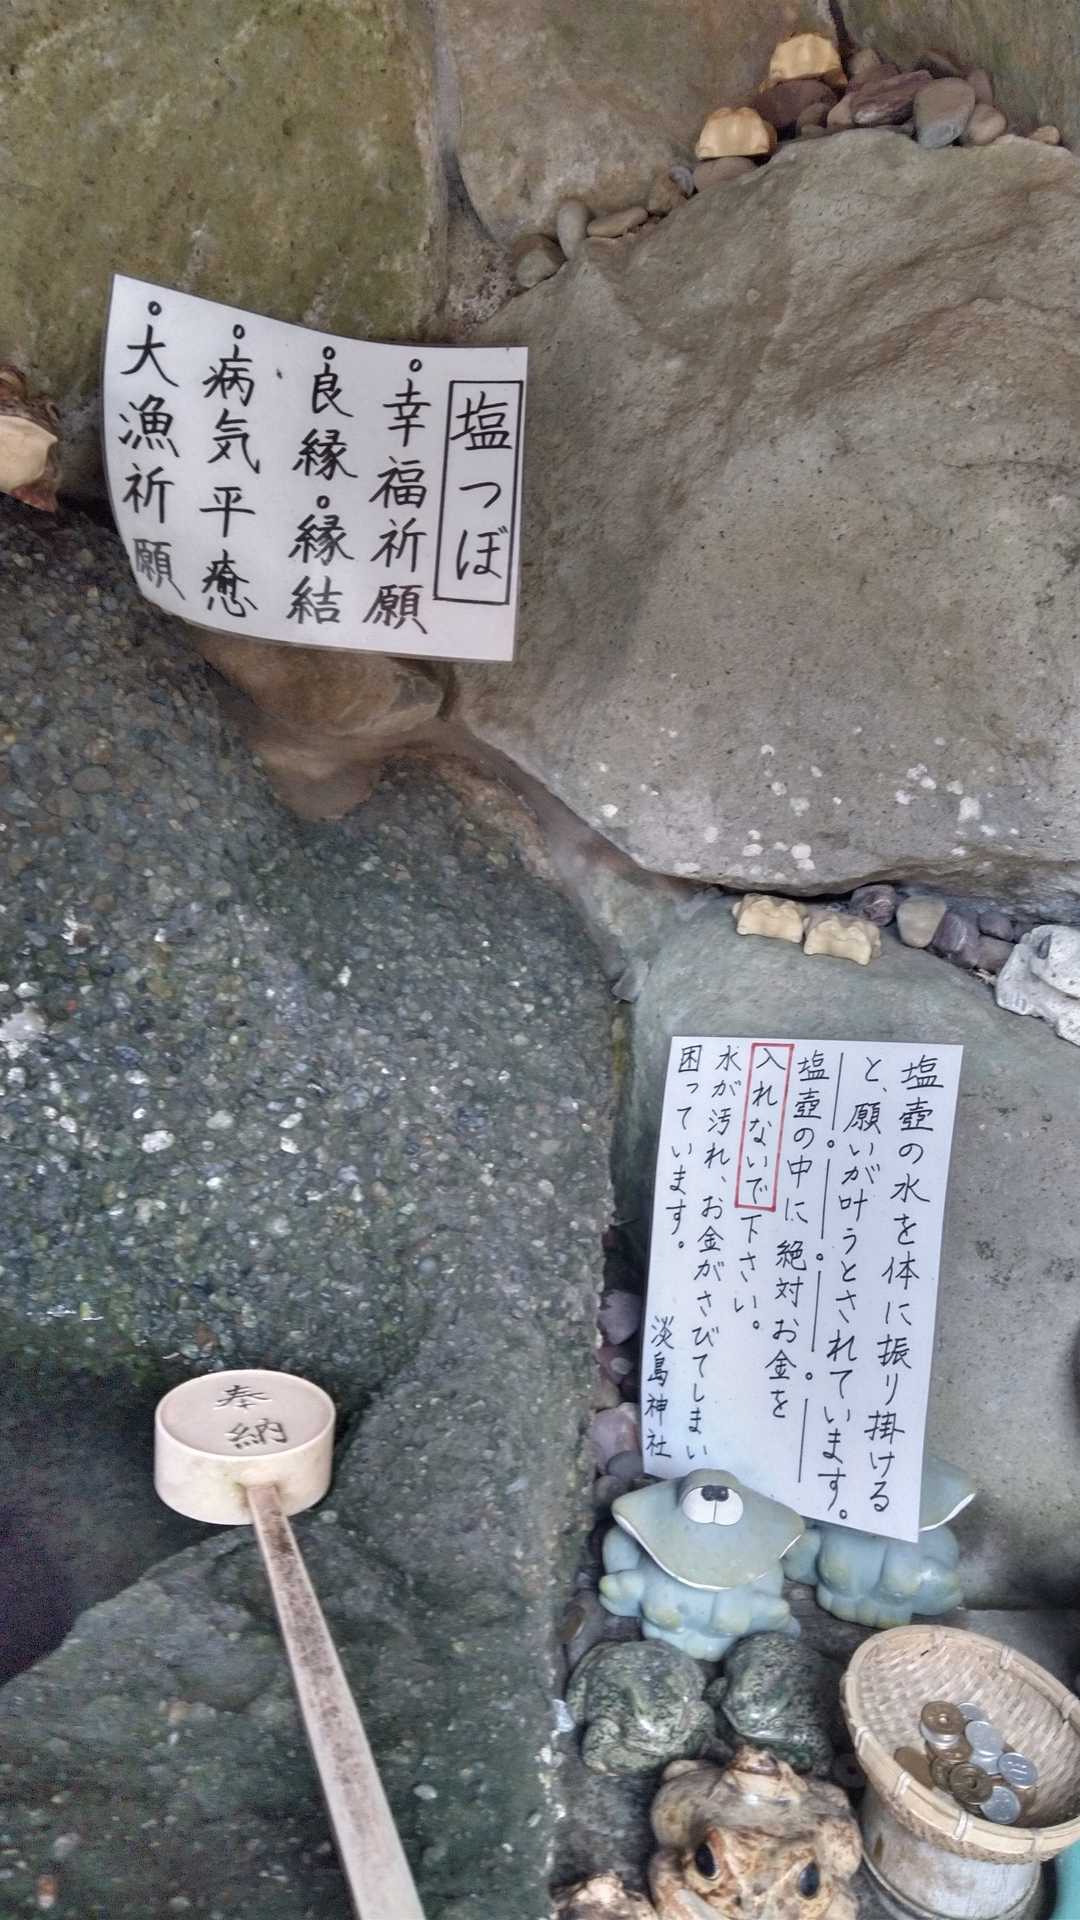 塩つぼ
。幸福祈願
。良縁。縁結
。病気平癒
。大漁祈願
塩壺の水を体に振り掛ける
と、願いが叶うとされています。
塩壺の中に絶対お金を
入れないで下さい。
水が汚れ、お金がさびてしまい
困っています。
淡島神社
奉納